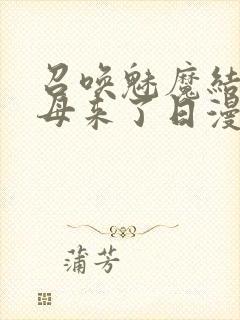 召唤魅魔结
母来了日漫
蒲芳